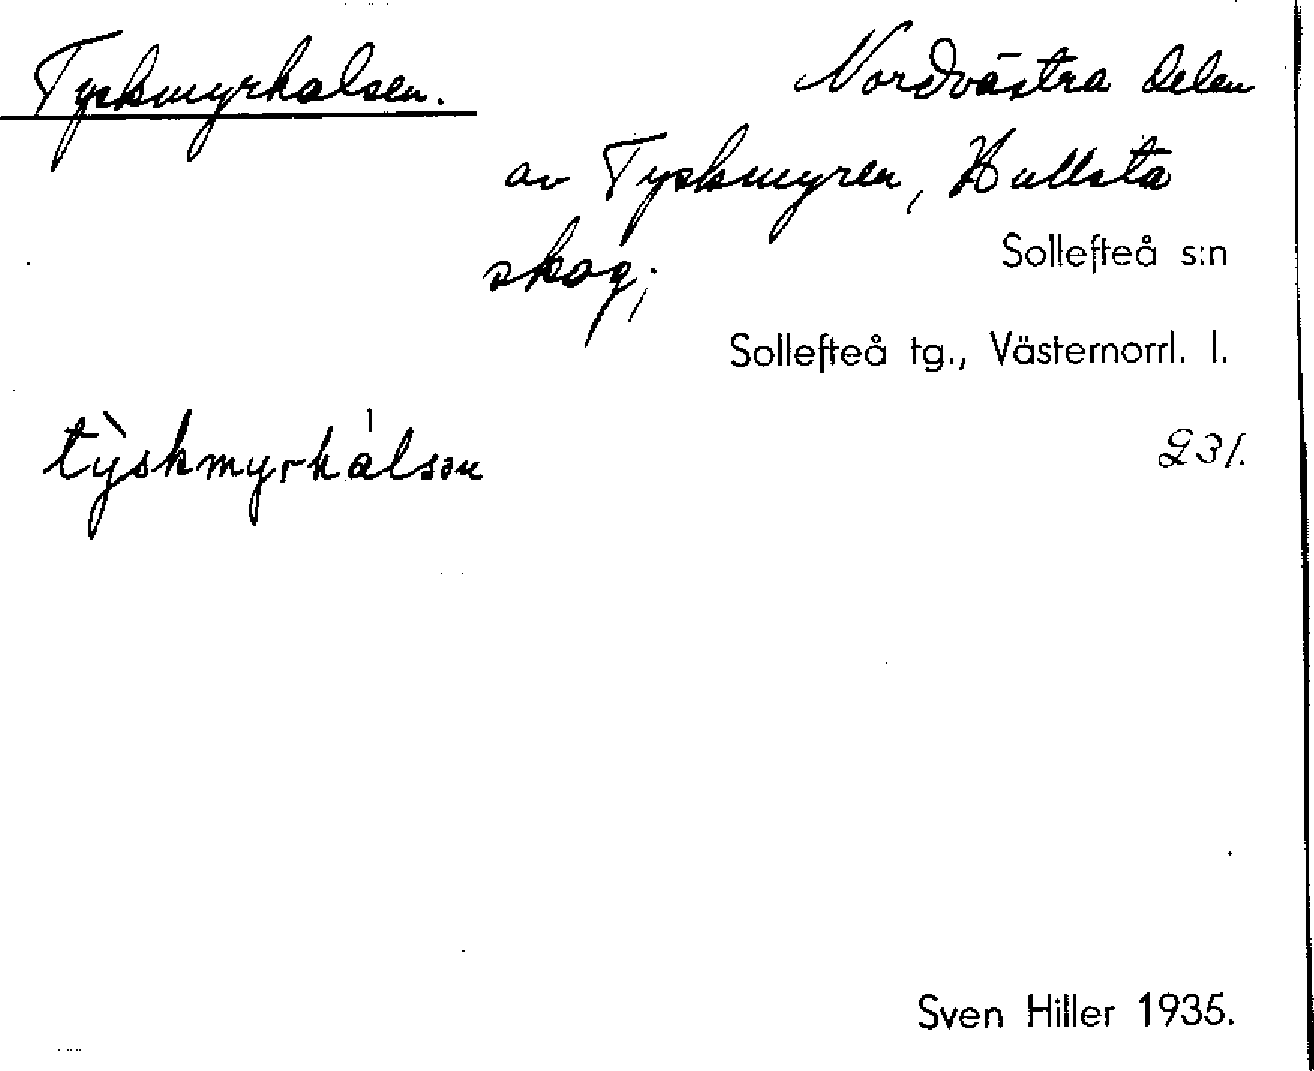 Tyskmyrhalsen.
Nordvästra delen
av Tyskmyren, Hullsta
skog;
Sollefteå s:n
Sollefteå tg., Västernorrl. l.
tỳskmyrhálsən
231.
Sven Hiller 1935.